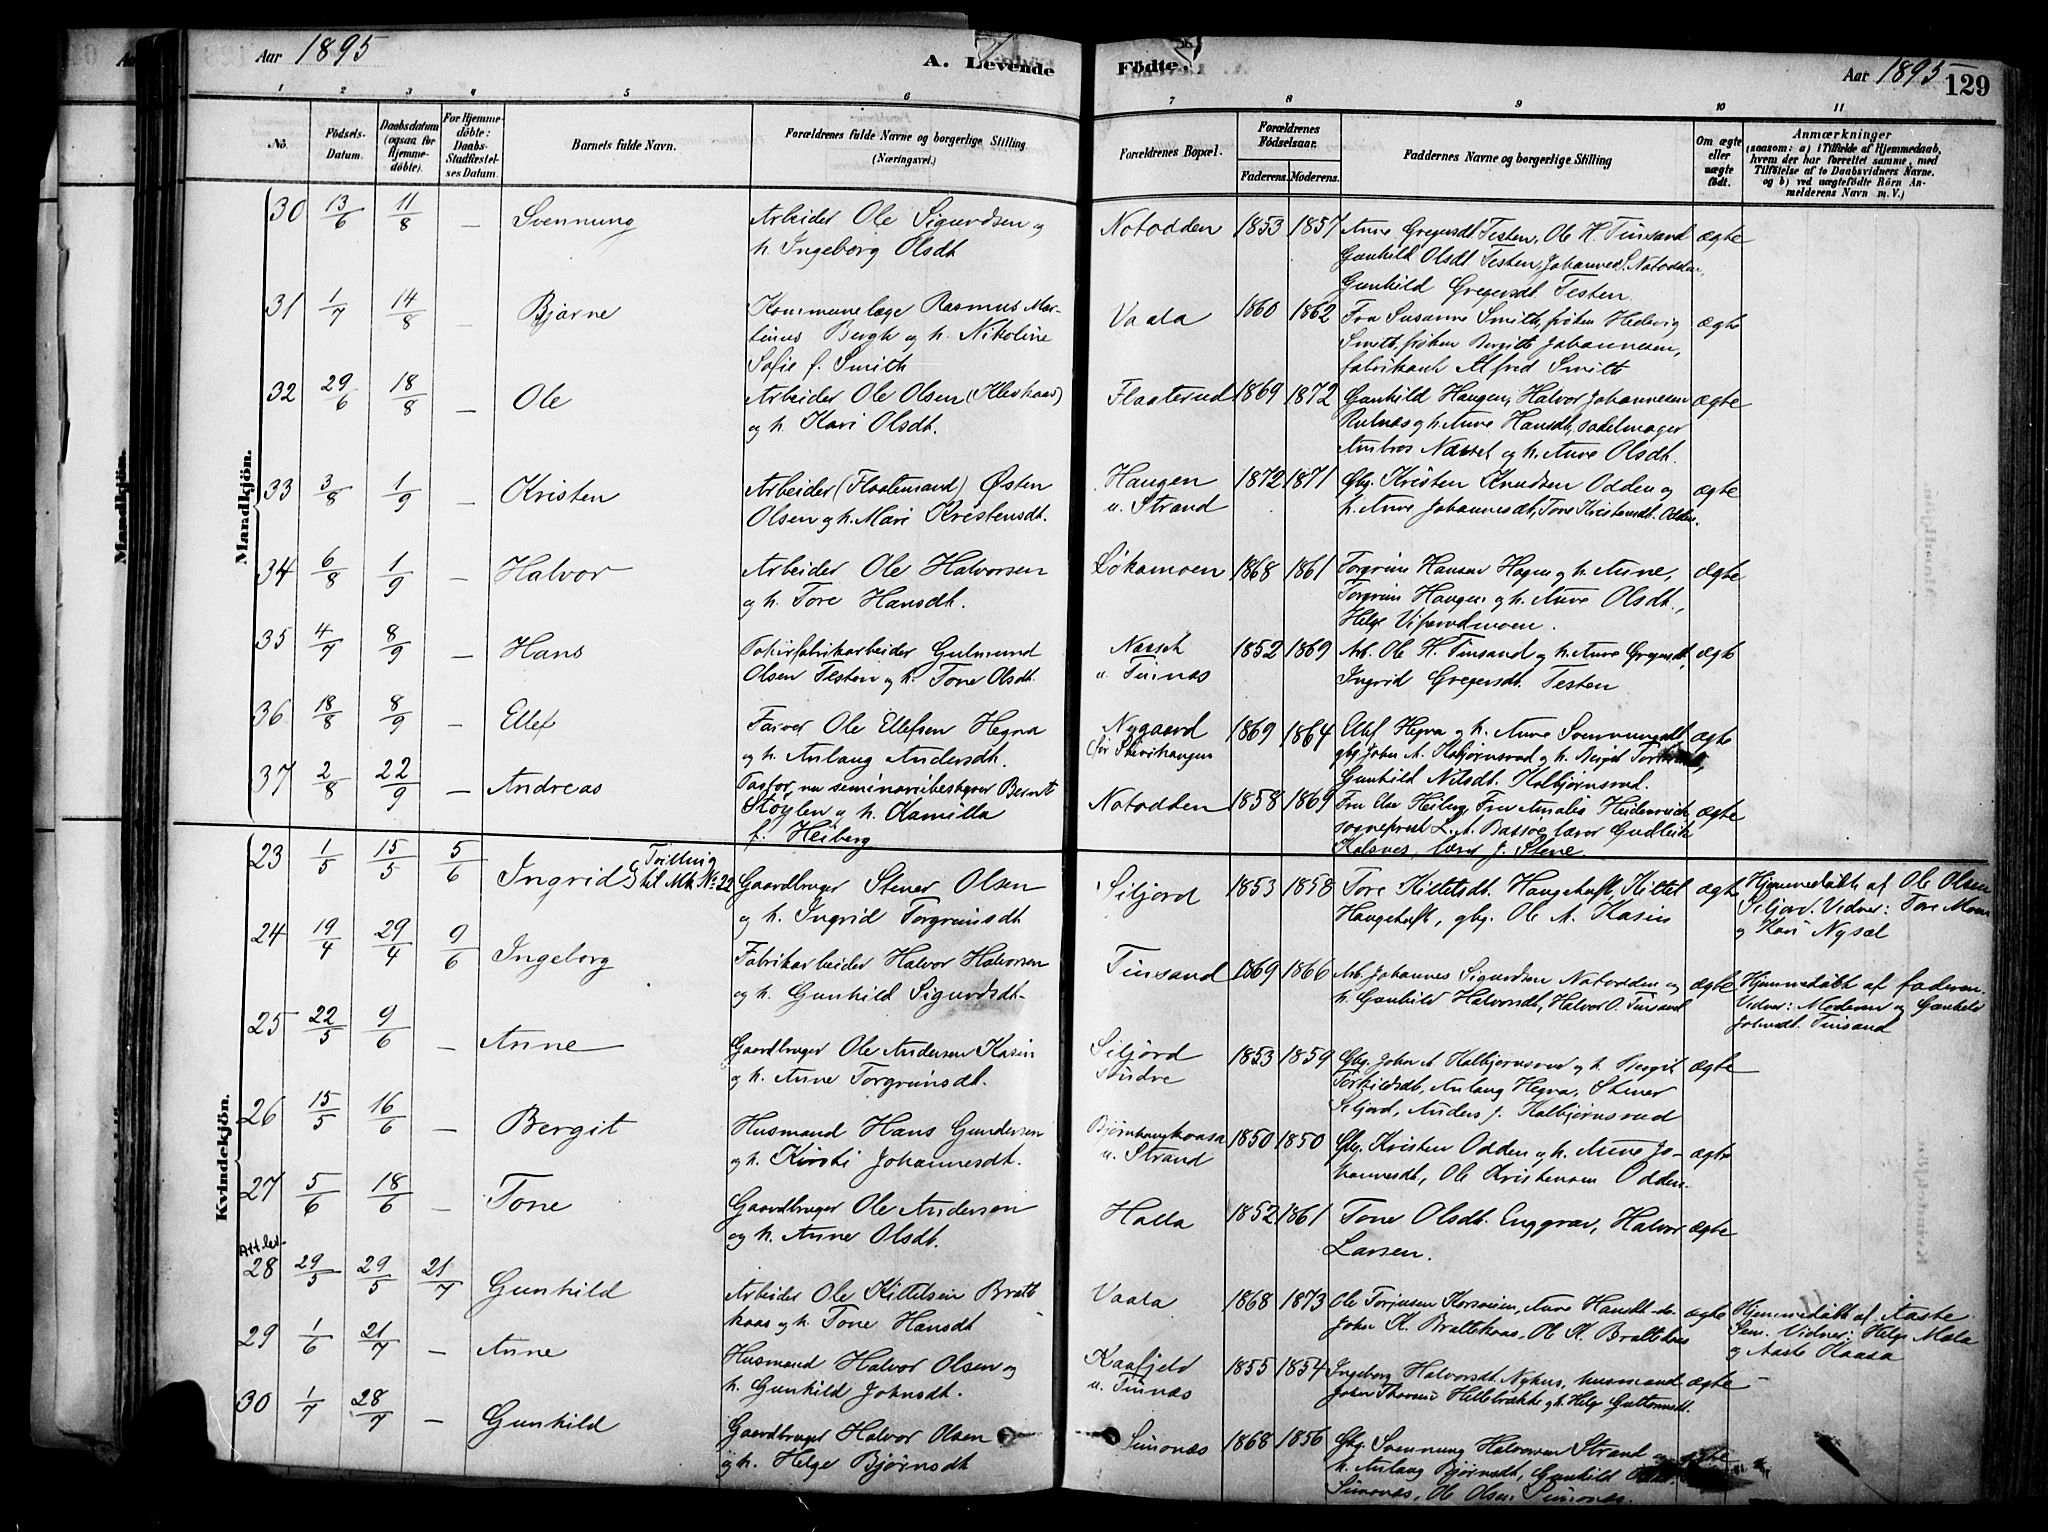 Aar 1895
A. Levende
Födte.
Aar 1895
129
1 2 3 4 5 6 7 8 9 10 11
No.
Födsels-Datum.
Daabsdatum (ogsaa for Hjemmedöbte).
For Hjemmedöbte: Daabs-Stadfæstelses Datum.
Barnets fulde Navn.
Forældrenes fulde Navne og borgerlige Stilling (Næringsvei.)
Forældrenes Bopæl.
Forældrenes Födselsaar.
Faderens. Moderens.
Faddernes Navne og borgerlige Stilling
Om ægte eller uægte födt.
Anmærkninger
(saasom: a) i Tilfælde af Hjemmedaab,
hvem der har forrettet samme, med
Tilföielse af to Daabsvidners Navne.
og b) ved uægtefödte Börn Anmelderens Navn m. V.)
Mandkjön.
30 13/6 11/8 — Svennung
Arbeider Ole Sigurdsen og
h. Ingeborg Olsdt
Notodden 1853 1857
Anne Gregersdt Testen, Ole H. Tinsand
Gunhild Olsdt Testen, Johannes S. Notodden,
Gunhild Gregersdt. Testen.
ægte
31 1/7 14/8 — Bjarne
Kommunelæge Rasmus Mar-
tinus Bergh og h. Nikoline
Sofie f. Smith
Vaala 1860 1862
Fru Susanne Smith, frøken Hedevig
Smith, frøken Bergitte Johannesen,
fabrikant Alfred Smith
ægte
32 29/6 18/8 — Ole
Arbeider Ole Olsen (Klevkaas)
og h. Kari Olsdt.
Flaaterud 1869 1872
Gunhild Haugen, Halvor Johannesen
Rulnæs og h. Anne Hansdt, sadelmager
Ambros Næsset og h. Anne Olsdt.
ægte
33 3/8 1/9 — Kristen
Arbeider (Flaatemand) Østen
Olsen og h. Mari Kristensdt.
Haugen
u. Strand
1872 1871
Gbg. Kristen Knudsen Odden og
h. Anne Johannesdt, Tone Kristensdt. Odden.
ægte
34 6/8 1/9 — Halvor
Arbeider Ole Halvorsen
og h. Tore Hansdt.
Løkamoen 1868 1861
Torgrim Hansen Hagen og h. Anne,
Torgrim Haugen og h. Anne Olsdt.,
Helge Viperudmoen.
ægte
35 4/7 8/9 — Hans
Papirfabrikarbeider Gulmund
Olsen Testen og h. Tone Olsdt.
Næsset
u. Tinnæs
1852 1869
Arb. Ole H. Tinsand og h. Anne Gregersdt,
Ingrid Gregersdt. Testen
ægte
36 18/8 8/9 — Ellef
Farver Ole Ellefsen Hegna
og h. Anlaug Andersdt.
Nygaard
1869 1864
Ellef Hegna og h. Anne Svennungsdt
gbg. John A. Kolbjørnsrud og h. Bergit
Gunhild Nilsdt. Kolbjørnsrud.
ægte
37 2/8 22/9 — Andreas
Pastor, nu seminariebestyrer Bernt
Støylen og h. Kamilla
f. Heiberg
Notodden 1858 1869
Fru Else Heiberg, Fru Amalia Heidenreich
sogneprest L. A. Bassøe, lærer Gudleik
Kolsnes, lærer J. Stene.
ægte
Kvindekjön.
23 1/5 15/5 5/6 Ingrid Tvilling til Mk No. 22
Gaardbruger Stener Olsen
og h. Ingrid Torgrimsdt
Siljord 1853 1858
Tore Kittelsdt. Haugetuft, Kittel
Haugetuft, gbg. Ole A. Kasin
ægte
Hjemmedøbt af Ole Olsen
Siljor. Vidner: Tore Moen
og Kari Nysæl
24 19/4 29/4 9/6 Ingeborg
Fabrikarbeider Halvor Halvorsen
og h. Gunhild Sigurdsdt.
Tinsand 1869 1866
Arb. Johannes Sigurdsen Notodden og
h. Gunhild Halvorsdt, Halvor O. Tinsand
ægte
Hjemmedøbt af faderen.
Vidner: Moderen og Gunhild
Johnsdt. Tinsand
25 22/5 9/6 — Anne
Gaardbruger Ole Andersen Kasin
og h. Anne Torgrimsdt.
Siljord
søndre
1853 1859
Gbg. John A. Kolbjørnsrud og h. Bergit
Torkildsdt, Anlaug Hegna, Stener
Siljord, Anders J. Kolbjørnsrud
ægte
26 15/5 16/6 — Bergit
Husmand Hans Gundersen
og h. Kirsti Johannesdt.
Bjørnhaugkaasa
u. Strand
1850 1850
Gbg. Kristen Odden og h. Anne Jo-
hannesdt, Ole Kristensen Odden.
ægte
27 5/6 18/6 — Tone
Gaardbruger Ole Andersen
og h. Anne Olsdt.
Halla 1852 1861
Tone Olsdt. Enggrav, Halvor
Larsen.
ægte
Att. lev.
28 29/5 29/5 21/7 Gunhild
Arbeider Ole Kittelsen Bratt-
kaas og h. Tone Hansdt
Vaala 1868 1873
Ole Torjusen Korsveien, Anne Hansdt.
John K. Brattekaas, Ole K. Brattekaas
ægte
Hjemmedøbt af Aaste
Sem. Vidner: Helge Mæla
og Aaste Kaasa
29 1/6 21/7 — Anne
Husmand Halvor Olsen og
h. Gunhild Johnsdt.
Kaafjeld
u. Tinnæs
1855 1854
Ingeborg Halvorsdt. Nyhus, husmand
John Thovsen Hellebrække og h. Helge Guttormsdt.
ægte
30 1/7 28/7 — Gunhild
Gaardbruger Halvor Olsen
og h. Helge Bjørnsdt
Simonæs 1868 1856
Gbg. Svennung Halvorsen Strand og
h. Anlaug Bjørnsdt, Gunhild
Simonæs, Ole Olsen Simonæs.
ægte